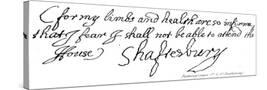 for my limbs and health are so infirme
that I fear I shall not be able to attend the
House) Shaftesbury